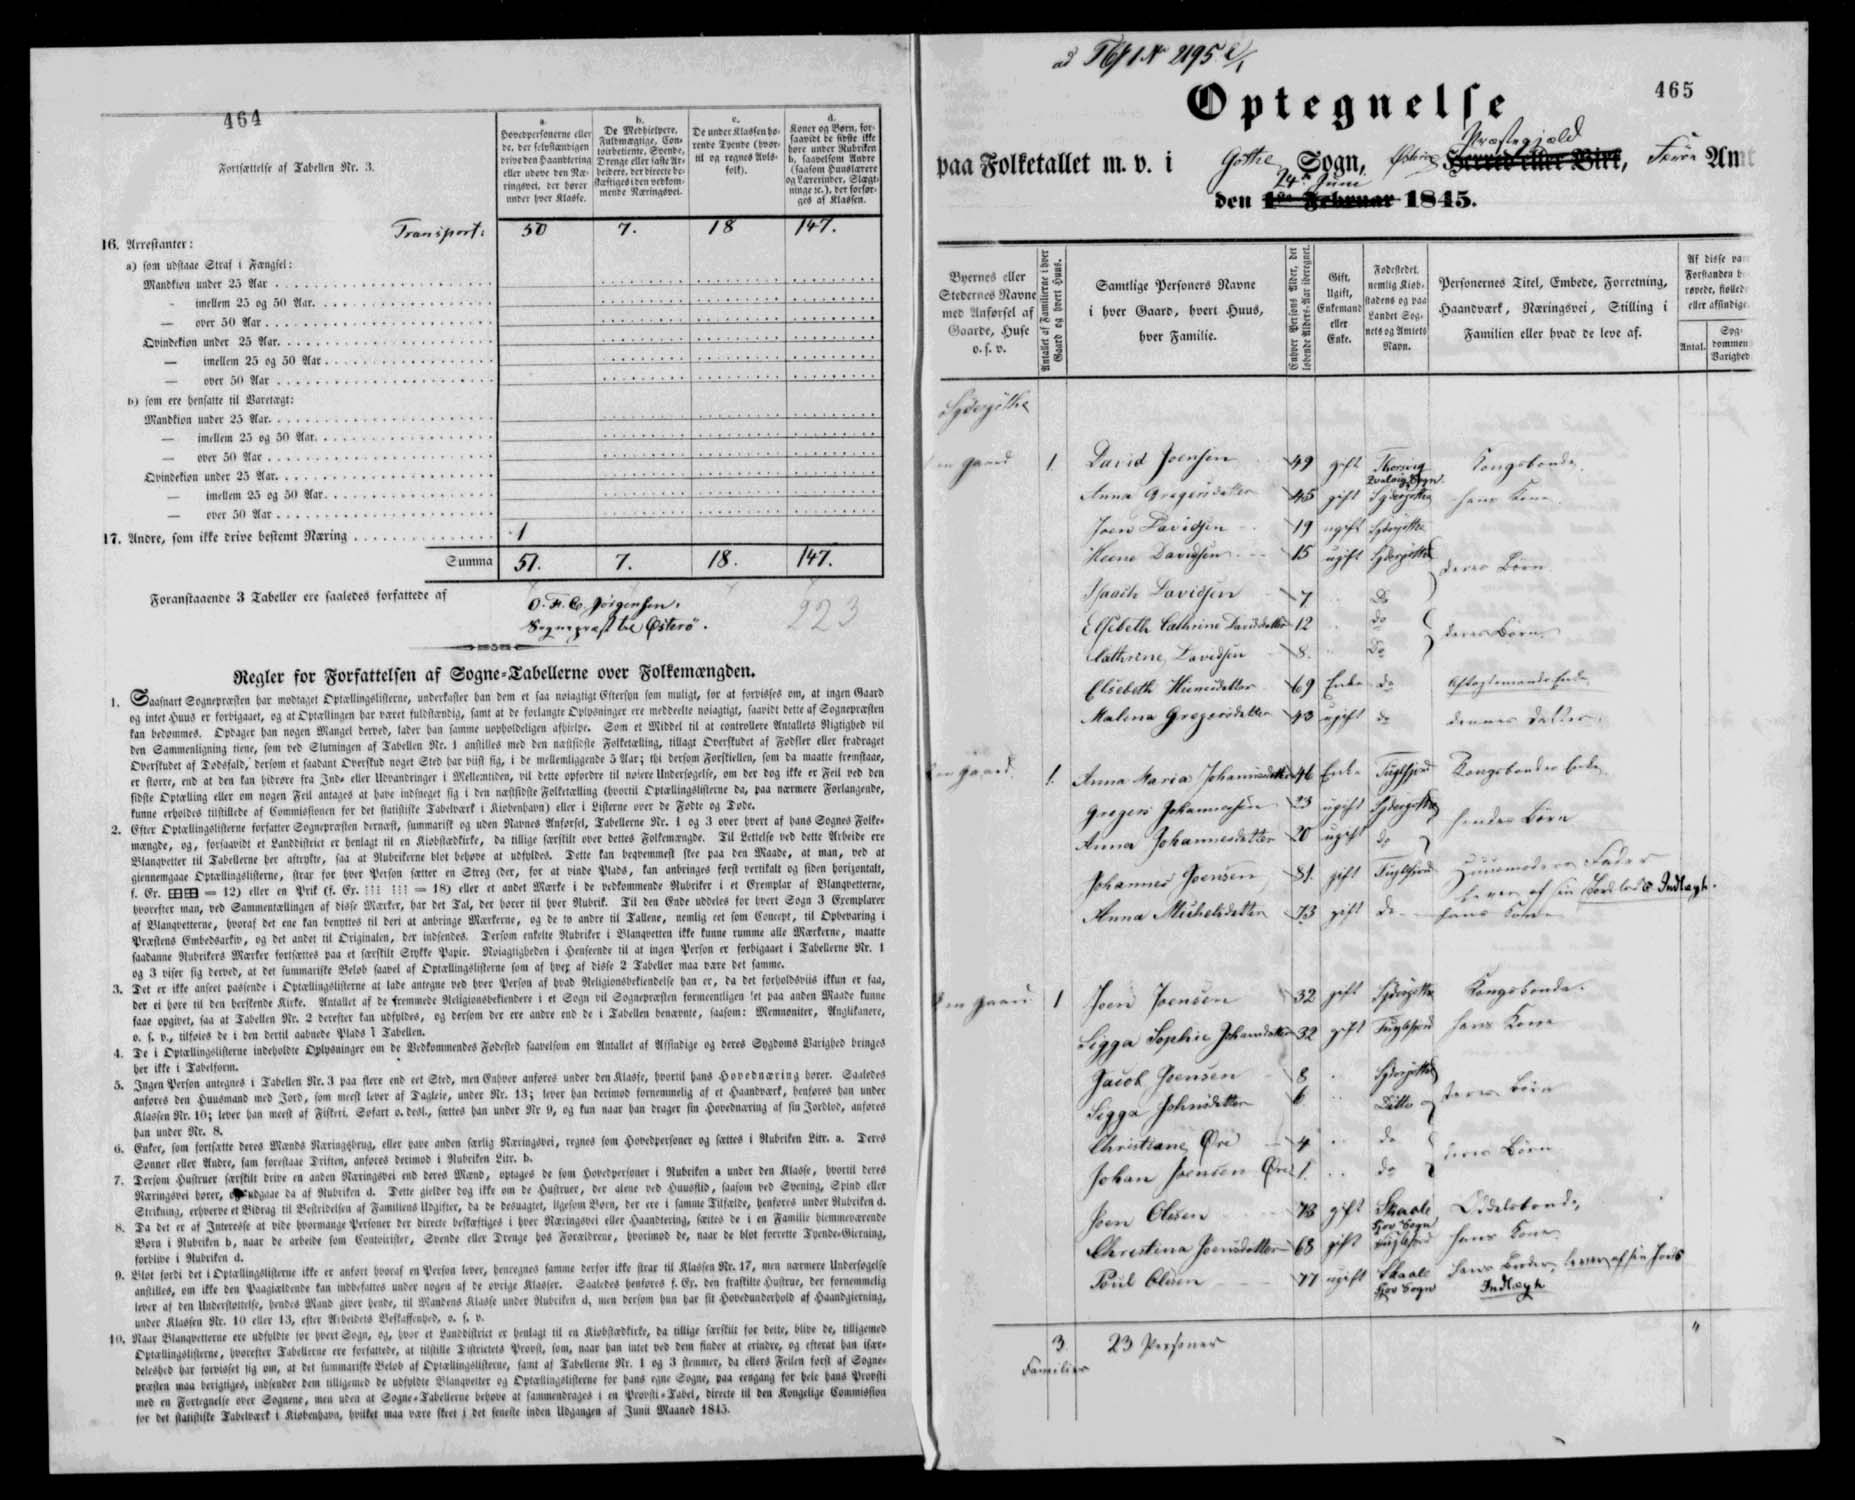 464
Fortsættelse af Tabellen Nr. 3.
a.
Hovedpersonerne eller
de, der selvstændigen
drive den Haandtering
eller udøve den Næ-
ringsvei, der hører
under hver Klasse.
b.
De Medhielpere,
Fuldmægtige, Con-
toirbetiente, Svende,
Drenge eller faste Ar-
beidere, der directe be-
skæftiges i den vedkom-
mende Næringsvei.
c.
De under Klassen hø-
rende Tyende (hvor-
til og regnes Avls-
folk).
d.
Koner og Børn, for-
saavidt de sidste ikke
høre under Rubriken
b, saavelsom Andre
(saasom Huuslærere
og Lærerinder, Slægt-
ninge ic.), der forsør-
ges af Klassen.
Transport: 50 7. 18 147.
16. Arrestanter:
a) som udstaae Straf i Fængsel:
Mandkiøn under 25 Aar
- imellem 25 og 50 Aar.
— over 50 Aar
Qvindekiøn under 25 Aar.
— imellem 25 og 50 Aar
— over 50 Aar
b) som ere hensatte til Varetægt:
Mandkiøn under 25 Aar.
— imellem 25 og 50 Aar.
— over 50 Aar
Qvindekiøn under 25 Aar.
— imellem 25 og 50 Aar.
— over 50 Aar
17. Andre, som ikke drive bestemt Næring 1
Summa 51. 7. 18. 147.
Foranstaaende 3 Tabeller ere saaledes forfattede af
O. F. C. Jörgensen.
Sognepræst til Østerö.
223
Regler for Forfattelsen af Sogne-Tabellerne over Folkemængden.
1. Saasnart Sognepræsten har modtaget Optællingslisterne, underkaster han dem et saa nøiagtigt Eftersyn som muligt, for at forvisses om, at ingen Gaard
og intet Huus er forbigaaet, og at Optællingen har været fuldstændig, samt at de forlangte Oplysninger ere meddeelte nøiagtigt, saavidt dette af Sognepræsten
kan bedømmes. Opdager han nogen Mangel derved, lader han samme uopholdeligen afhielpe. Som et Middel til at controllere Antallets Rigtighed vil
den Sammenligning tiene, som ved Slutningen af Tabellen Nr. 1 anstilles med den næstsidste Folketælling, tillagt Overskudet af Fødsler eller fradraget
Overskudet af Dødsfald, dersom et saadant Overskud noget Sted har viist sig, i de mellemliggende 5 Aar; thi dersom Forskiellen, som da maatte fremstaae,
er større, end at den kan hidrøre fra Ind- eller Udvandringer i Mellemtiden, vil dette opfordre til nøiere Undersøgelse, om der dog ikke er Feil ved den
sidste Optælling eller om nogen Feil antages at have indsneget sig i den næstsidste Folketælling (hvortil Optællingslisterne da, paa nærmere Forlangende,
kunne erholdes tilstillede af Commissionen for det statistiske Tabelværk i Kiøbenhavn) eller i Listerne over de Fødte og Døde.
2. Efter Optællingslisterne forfatter Sognepræsten dernæst, summarisk og uden Navnes Anførsel, Tabellerne Nr. 1 og 3 over hvert af hans Sognes Folke-
mængde, og, forsaavidt et Landdistrict er henlagt til en Kiøbstædkirke, da tillige særskilt over dettes Folkemængde. Til Lettelse ved dette Arbeide ere
Blanqvetter til Tabellerne her aftrykte, saa at Rubrikerne blot behøve at udfyldes. Dette kan beqvemmest skee paa den Maade, at man, ved at
giennemgaae Optællingslisterne, strax for hver Person sætter en Streg (der, for at vinde Plads, kan anbringes først vertikalt og siden horizontalt,
f. Ex. ⊞⊞ = 12) eller en Prik (f. Ex. ⁝⁝⁝ ⁝⁝⁝ = 18) eller et andet Mærke i de vedkommende Rubriker i et Exemplar af Blanqvetterne,
hvorefter man, ved Sammentællingen af disse Mærker, har det Tal, der hører til hver Rubrik. Til den Ende uddeles for hvert Sogn 3 Exemplarer
af Blanqvetterne, hvoraf det ene kan benyttes til deri at anbringe Mærkerne, og de to andre til Tallene, nemlig eet som Concept, til Opbevaring i
Præstens Embedsarkiv, og det andet til Originalen, der indsendes. Dersom enkelte Rubriker i Blanqvetten ikke kunne rumme alle Mærkerne, maatte
saadanne Rubrikers Mærker fortsættes paa et særskilt Stykke Papir. Nøiagtigheden i Henseende til at ingen Person er forbigaaet i Tabellerne Nr. 1
og 3 viser sig derved, at det summariske Beløb saavel af Optællingslisterne som af hver af disse 2 Tabeller maa være det samme.
3. Det er ikke anseet passende i Optællingslisterne at lade antegne ved hver Person af hvad Religionsbekiendelse han er, da det forholdsviis ikkun er faa,
der ei høre til den herskende Kirke. Antallet af de fremmede Religionsbekiendere i et Sogn vil Sognepræsten formeentligen let paa anden Maade kunne
faae opgivet, saa at Tabellen Nr. 2 derefter kan udfyldes, og dersom der ere andre end de i Tabellen benævnte, saasom: Memnoniter, Anglikanere,
o. s. v., tilføies de i den dertil aabnede Plads i Tabellen.
4. De i Optællingslisterne indeholdte Oplysninger om de Vedkommendes Fødested saavelsom om Antallet af Afsindige og deres Sygdoms Varighed bringes
her ikke i Tabelform.
5. Ingen Person antegnes i Tabellen Nr. 3 paa flere end eet Sted, men Enhver anføres under den Klasse, hvortil hans Hovednæring hører. Saaledes
anføres den Huusmand med Jord, som meest lever af Dagleie, under Nr. 13; lever han derimod fornemmelig af et Haandværk, henføres han under
Klassen Nr. 10; lever han meest af Fiskeri, Søfart o. desl., sættes han under Nr 9, og kun naar han drager sin Hovednæring af sin Jordlod, anføres
han under Nr. 8.
6. Enker, som fortsætte deres Mænds Næringsbrug, eller have anden særlig Næringsvei, regnes som Hovedpersoner og sættes i Rubriken Litr. a. Deres
Sønner eller Andre, som forestaae Driften, anføres derimod i Rubriken Litr. b.
7. Dersom Hustruer særskilt drive en anden Næringsvei end deres Mænd, optages de som Hovedpersoner i Rubriken a under den Klasse, hvortil deres
Næringsvei hører, og udgaae da af Rubriken d. Dette gielder dog ikke om de Hustruer, der alene ved Huusflid, saasom ved Syening, Spind eller
Strikning, erhverve et Bidrag til Bestridelsen af Familiens Udgifter, da de desuagtet, ligesom Børn, der ere i samme Tilfælde, henføres under Rubriken d.
8. Da det er af Interesse at vide hvormange Personer der directe beskæftiges i hver Næringsvei eller Haandtering, sættes de i en Familie hiemmeværende
Børn i Rubriken b, naar de arbeide som Contoirister, Svende eller Drenge hos Forældrene, hvorimod de, naar de blot forrette Tyende-Gierning,
forblive i Rubriken d.
9. Blot fordi det i Optællingslisterne ikke er anført hvoraf en Person lever, henregnes samme derfor ikke strax til Klassen Nr. 17, men nærmere Undersøgelse
anstilles, om ikke den Paagieldende kan indbefattes under nogen af de øvrige Klasser. Saaledes henføres f. Ex. den fraskilte Hustrue, der fornemmelig
lever af den Understøttelse, hendes Mand giver hende, til Mandens Klasse under Rubriken d, men dersom hun har sit Hovedunderhold af Haandgierning,
under Klassen Nr. 10 eller 13, efter Arbeidets Beskaffenhed, o. s. v.
10. Naar Blanqvetterne ere udfyldte for hvert Sogn, og, hvor et Landdistrict er henlagt til en Kiøbstædkirke, da tillige særskilt for dette, blive de, tilligemed
Optællingslisterne, hvorefter Tabellerne ere forfattede, at tilstille Districtets Provst, som, naar han intet ved dem finder at erindre, og efterat han især-
deleshed har forvisset sig om, at det summariske Beløb af Optællingslisterne, samt af Tabellerne Nr. 1 og 3 stemmer, da ellers Feilen først af Sogne-
præsten maa berigtiges, indsender dem tilligemed de udfyldte Blanqvetter og Optællingslisterne for hans egne Sogne, paa eengang for hele hans Provsti
med en Fortegnelse over Sognene, men uden at Sogne-Tabellerne behøve at sammendrages i en Provsti-Tabel, directe til den Kongelige Commission
for det statistiske Tabelværk i Kiøbenhavn, hvilket maa være skeet i det seneste inden Udgangen af Junii Maaned 1845.
465
Optegnelse
Præstegjæld
paa Folketallet m. v. i Gøthe Sogn, Østerø Herred eller Birk, Færø Amt
24de Juni
den 1ste Februar 1845.
Byernes eller
Stedernes Navne
med Anførsel af
Gaarde, Huse
o. s. v.
Antallet af Familierne i hver
Gaard og hvert Huus.
Samtlige Personers Navne
i hver Gaard, hvert Huus,
hver Familie.
Enhver Persons Alder, det
løbende Alders-Aar iberegnet.
Gift,
Ugift,
Enkemand
eller
Enke.
Fødestedet,
nemlig Kiøb-
stadens og paa
Landet Sog-
nets og Amtets
Navn.
Personernes Titel, Embede, Forretning,
Haandværk, Næringsvei, Stilling i
Familien eller hvad de leve af.
Af disse
Forstanden
eller afsindige.
Antal.
Syg-
dommens
Varighed
Sydergøthe
en gaard 1 David Joensen 49 gift Thorsvig Kongsbonde
Qvalvig Sogn
Anna Gregersdatter 45 gift Sydergøthe hans Kone
Joen Davidsen 19 ugift Sydergøthe
Heene Davidsen 15 ugift Sydergøthe
deres Börn
Isaach Davidsen 7 .. Do
Elsebeth Cathrine Davidsdatter 12 .. do
deres Börn
Cathrine Davidsen 8. .. Do
Elsebeth Heinesdatter 69 Enke do Aftægtsmands Enke
Malena Gregersdatter 43 ugift do dennes datter.
en gaard 1. Anna Maria Johannesdatter 46 Enke Fuglefjord Kongsbondes Enke
Gregers Johannesen 23 ugift Sydergøthe
hendes Börn
Anna Johannesdatter 20 ugift do
Johannes Joensen 81. gift Fuglefjord Huusmoders Fader
lever af sin Jordlods Indtægt.
Anna Michelsdatter 73 gift do hans Kone
en gaard 1 Joen Joensen 32 gift Sydergøthe Kongsbonde.
Sigga Sophie Johansdatter 32 gift Fuglefjord hans Kone
Jacob Joensen 8 .. Sydergøthe
deres Börn
Sigga Johnsdatter 6. .. Ditto
Christiane Öre 4 .. do
deres Börn
Johan Joensen Öre 1. .. do
Joen Olesen 73 gift Skaale Odelsbonde,
Kjov Sogn
Christina Joensdatter 68 gift Fuglefjord hans Kone
Poul Olesen 77 ugift Skaale hans Broder, lever af sin Jords
Kjov Sogn Indtægt
3. 23 Personer "
Familier